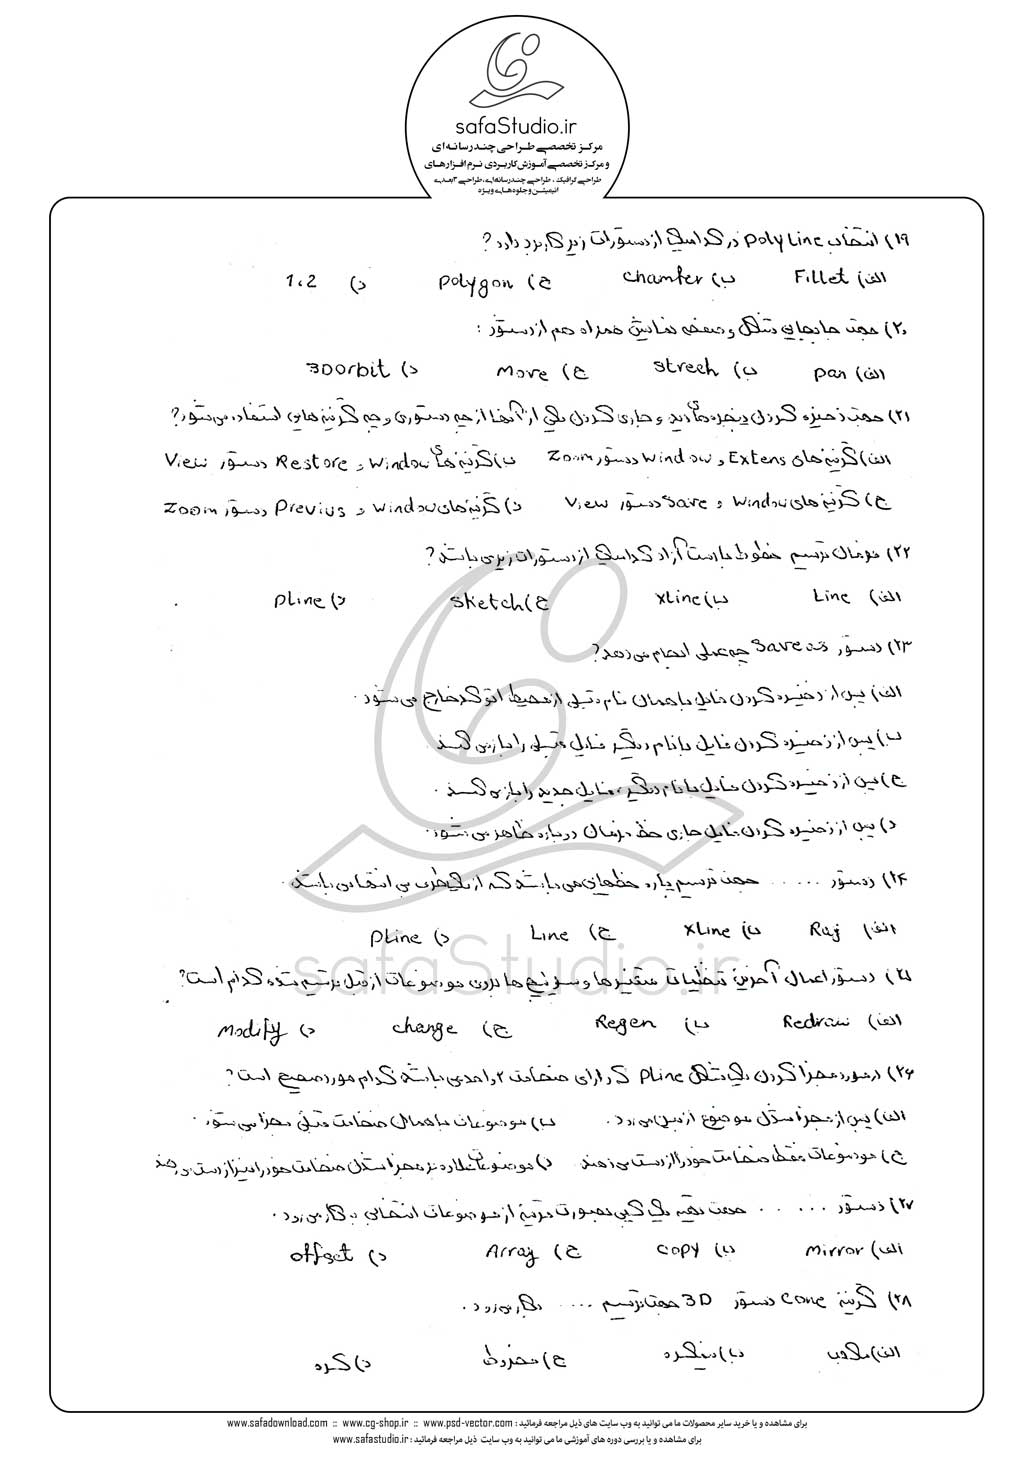 safaStudio.ir
مرکز تخصصی طراحی چندرسانه‌ای
و مرکز تخصصی آموزش کاربردی نرم افزارهای
طراحی گرافیک، طراحی چندرسانه‌ای، طراحی ۳بعدی
انیمیشن و جلوه‌های ویژه
۱۹) انتخاب Poly Line در کدامیک از دستورات زیر کاربرد دارد؟
الف) Fillet ب) Chamfer ج) Polygon د) 1،2
۲۰) جهت جابجایی شکل و صفحه نمایش همراه هم از دستور :
الف) Pan ب) Strech ج) Move د) 3DOrbit
۲۱) جهت ذخیره کردن پنجره‌های دید و جاری کردن یکی از آنها از چه دستوری و چه گزینه‌هایی استفاده می‌شود؟
الف) گزینه‌های Extens و Window دستور Zoom ب) گزینه‌های Window و Restore دستور View
ج) گزینه‌های Window و Save دستور View د) گزینه‌های Window و Previus دستور Zoom
۲۲) فرمان ترسیم خطوط با دست آزاد کدامیک از دستورات زیر می‌باشد؟
الف) Line ب) Xline ج) Sketch د) Pline
۲۳) دستور Save چه عملی انجام می‌دهد؟
الف) پس از ذخیره کردن فایل با همان نام قبلی از محیط اتوکد خارج می‌شود.
ب) پس از ذخیره کردن فایل با نام دیگر فایل قبلی را باز می‌کند.
ج) پس از ذخیره کردن فایل با نام دیگر، فایل جدید را باز می‌کند.
د) پس از ذخیره کردن فایل جاری خط فرمان دوباره ظاهر می‌شود.
۲۴) دستور ..... جهت ترسیم پاره خطهایی می‌باشد که از یک طرف بی انتها می‌باشند.
الف) Ray ب) XLine ج) Line د) PLine
safaStudio.ir
۲۵) دستور اعمال آخرین تنظیمات متغیرها و سوئیچ‌ها بر روی موضوعات از قبل ترسیم شده کدام است؟
الف) Redraw ب) Regen ج) change د) Modify
۲۶) در مورد مجزا کردن یک شکل Pline که دارای ضخامت ۲ واحد می‌باشد کدام مورد صحیح است؟
الف) پس از مجزا شدن موضوع از بین می‌رود. ب) موضوعات با همان ضخامت قبلی مجزا می‌شود.
ج) موضوعات فقط ضخامت خود را از دست می‌دهند د) موضوعات علاوه بر مجزا شدن ضخامت خود را نیز از دست می‌دهند
۲۷) دستور ..... جهت تهیه یک کپی بصورت قرینه از موضوعات انتخابی به کار می‌رود.
الف) Mirror ب) Copy ج) Array د) offset
۲۸) گزینه Cone دستور 3D جهت ترسیم .... بکار می‌رود.
الف) مکعب ب) نیمکره ج) مخروط د) کره
برای مشاهده و یا خرید سایر محصولات ما می توانید به وب سایت های ذیل مراجعه فرمائید : www.safadownload.com :: www.cg-shop.ir :: www.psd-vector.com
برای مشاهده و یا بررسی دوره های آموزشی ما می توانید به وب سایت ذیل مراجعه فرمائید : www.safastudio.ir